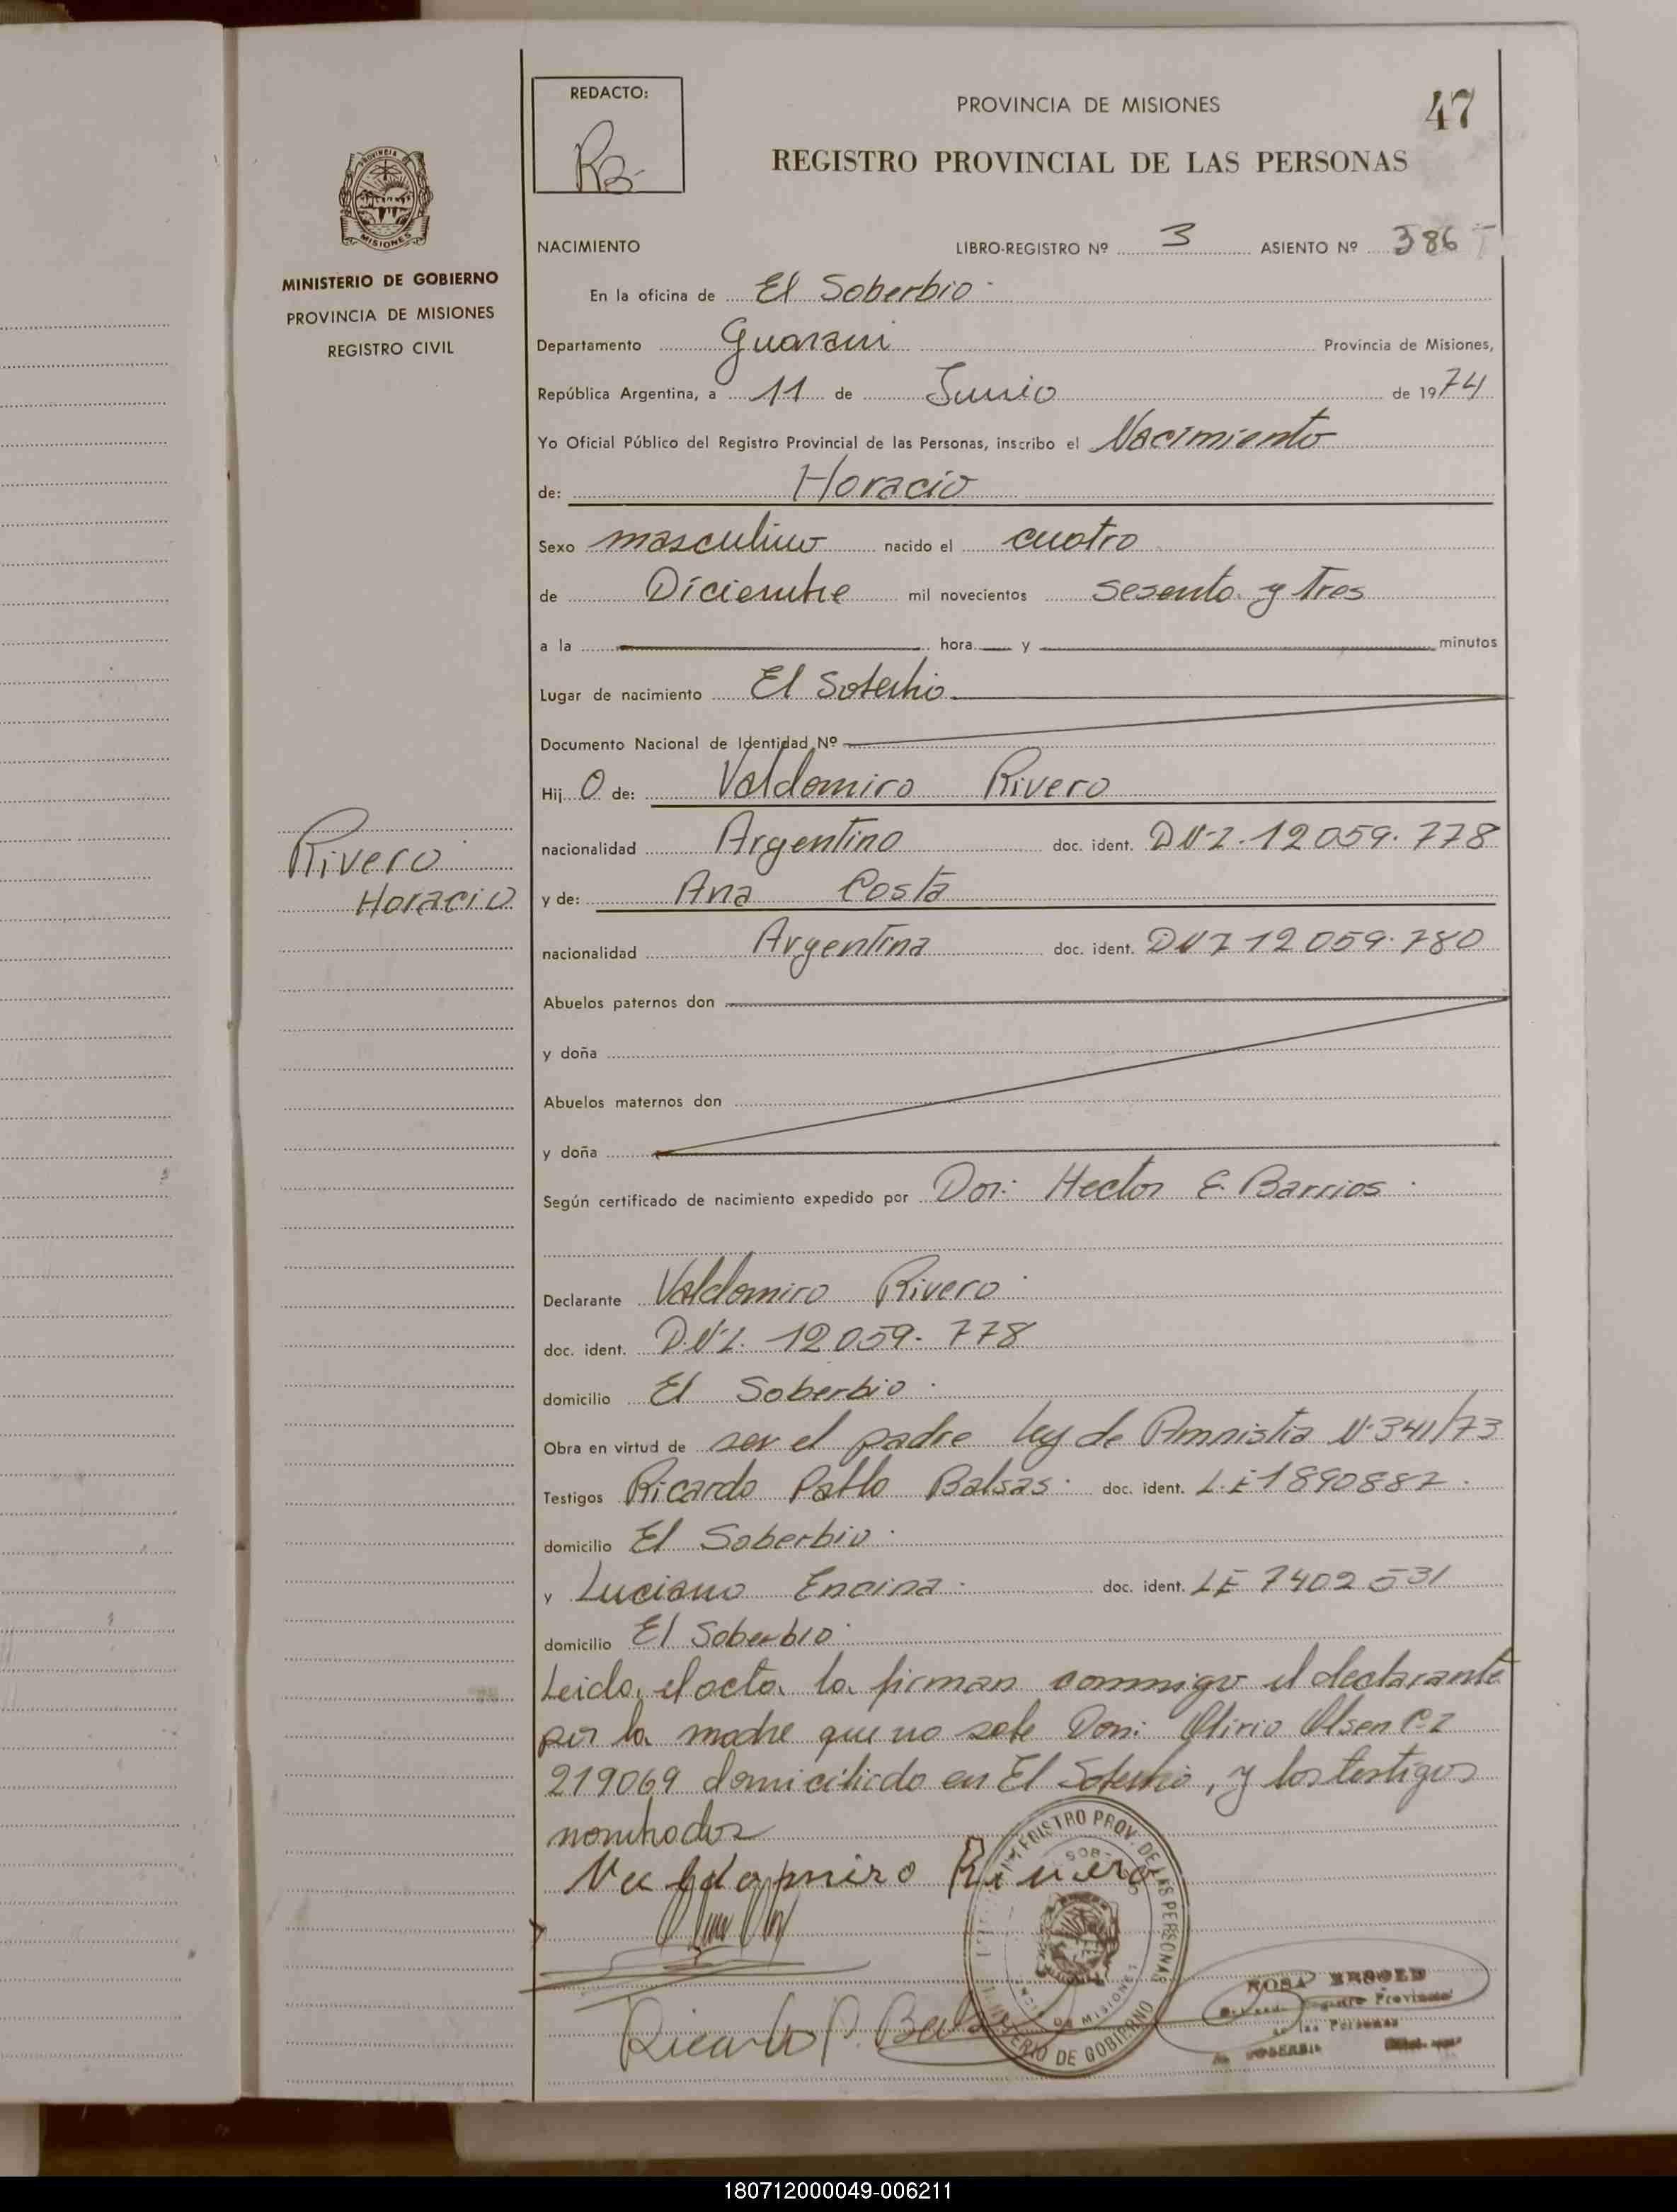 REDACTO:
PROVINCIA DE MISIONES
47
REGISTRO PROVINCIAL DE LAS PERSONAS
PROVINCIA DE
MISIONES
MINISTERIO DE GOBIERNO
PROVINCIA DE MISIONES
REGISTRO CIVIL
NACIMIENTO LIBRO-REGISTRO Nº 3 ASIENTO Nº 386 T
En la oficina de El Soberbio
Departamento Guarani Provincia de Misiones,
República Argentina, a 11 de Junio de 1974
Yo Oficial Público del Registro Provincial de las Personas, inscribo el Nacimiento
de: Horacio
Sexo masculino nacido el cuatro
de Diciembre mil novecientos sesenta y Tres
a la hora y minutos
Lugar de nacimiento El Soberbio
Documento Nacional de Identidad Nº
Hij O de: Valdomiro Rivero
nacionalidad Argentino doc. ident. DNI. 12059.778
Rivero
Horacio
y de: Ana Costa
nacionalidad Argentina doc. ident. DNI 12059.780
Abuelos paternos don
y doña
Abuelos maternos don
y doña
Según certificado de nacimiento expedido por Don: Hector E. Barrios
Declarante Valdomiro Rivero
doc. ident. D.N.I. 12059.778
domicilio El Soberbio
Obra en virtud de ser el padre ley de Amnistia Nº 341/73
Testigos Ricardo Pablo Balsas doc. ident. L.E 1890887
domicilio El Soberbio
y Luciano Encina doc. ident. LE 7402531
domicilio El Soberbio
Leida el acta la firman conmigo el declarante
por la madre que no sabe Don: Olirio Olsen C.I
219069 domiciliado en El Soberbio, y los testigos
nombrados
Valdomiro Rivero
Ricardo P. Balsas
REGISTRO PROV. DE LAS PERSONAS
MINISTERIO DE GOBIERNO
MISIONES
ROSA
Registro Provincial
de las Personas
EL SOBERBIO
180712000049-006211